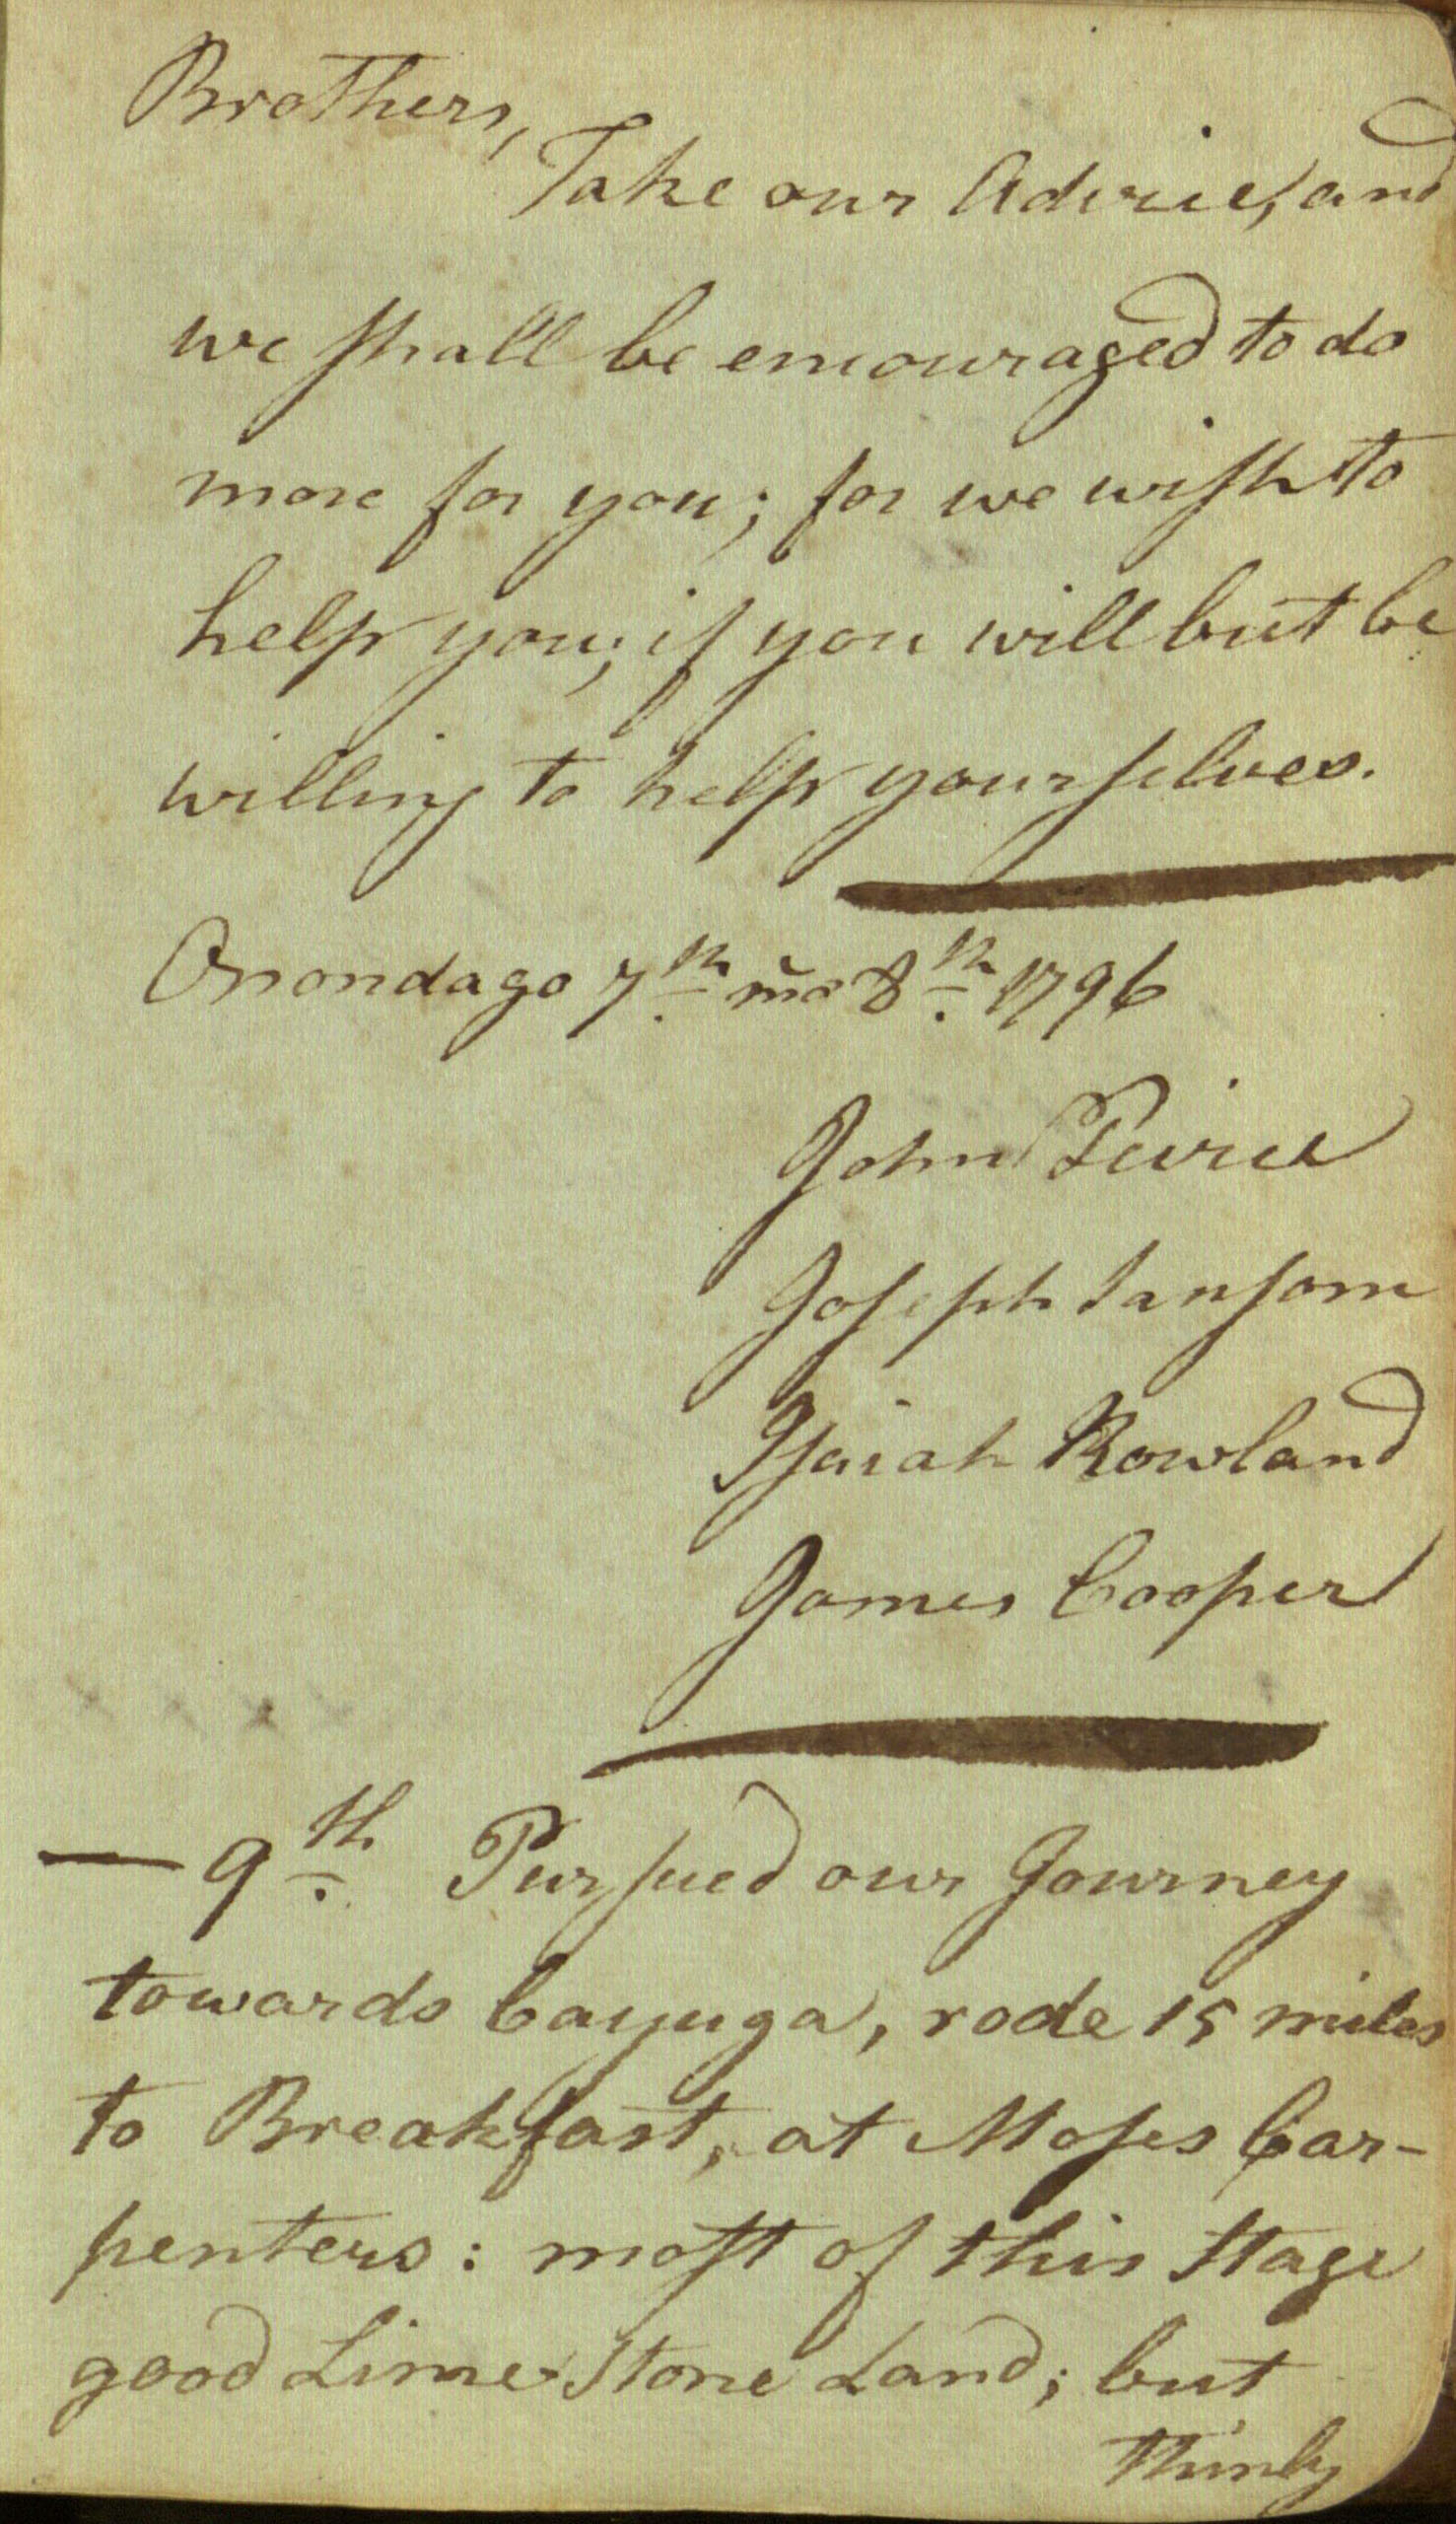 Brothers,
Take our Advice, and
we shall be encouraged to do
more for you; for we wish to
help you; if you will but be
willing to help yourselves.
Onondago 7th mo 8th 1796
John Peirce
Joseph Sansom
Isaiah Rowland
James Cooper
— 9th Pursued our Journey
towards Cayuga, rode 15 miles
to Breakfast, at Moses Car-
penters: most of this Stage
good Lime Stone Land; but
thinly